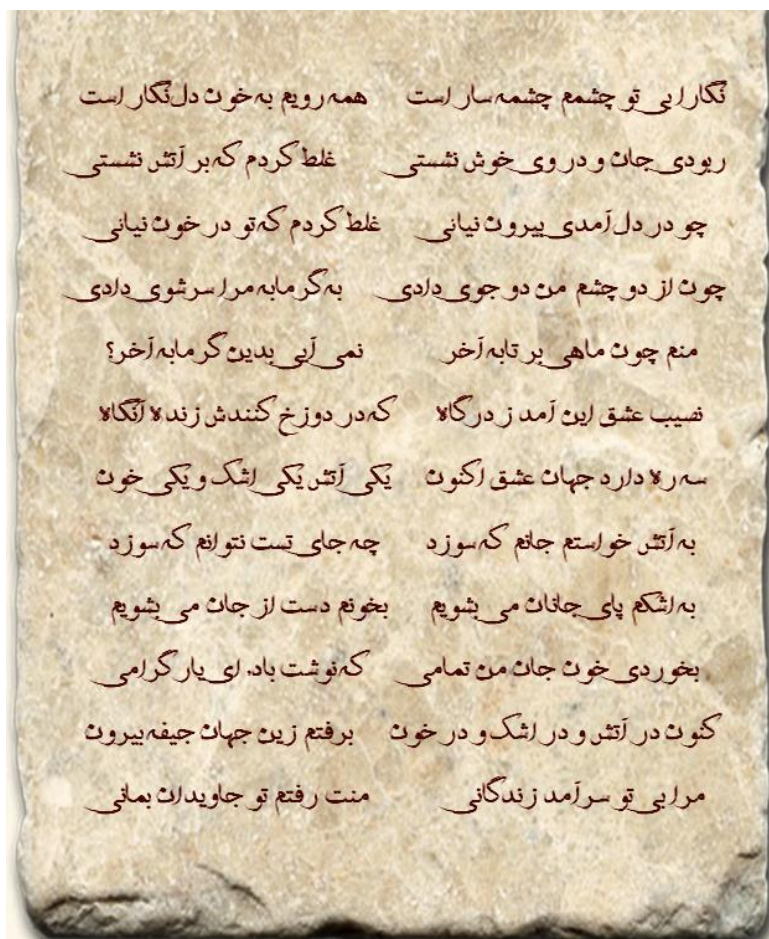 نگارا بی تو چشمم چشمه سار است همه رویم به خون دل نگار است
ربودی جان و در وی خوش نشستی غلط کردم که بر آتش نشستی
چو در دل آمدی بیرون نیانی غلط کردم که تو در خون نیانی
چون از دو چشم من دو جوی دادی به گرمابه مرا سرشوی دادی
منم چون ماهی بر تابه آخر نمی آیی بدین گرمابه آخر؟
نصیب عشق این آمد ز درگاه که در دوزخ کنندش زنده آنگاه
سه ره دارد جهان عشق اکنون یکی آتش یکی اشک و یکی خون
به آتش خواستم جانم که سوزد چه جای تست نتوانم که سوزد
به اشکم پای جانان می بشویم بخونم دست از جان می بشویم
بخوردی خون جان من تمامی که نوشت باد، ای یار گرامی
کنون در آتش و در اشک و در خون برفتم زین جهان جیفه بیرون
مرا بی تو سرآمد زندگانی منت رفتم تو جاویدان بمانی